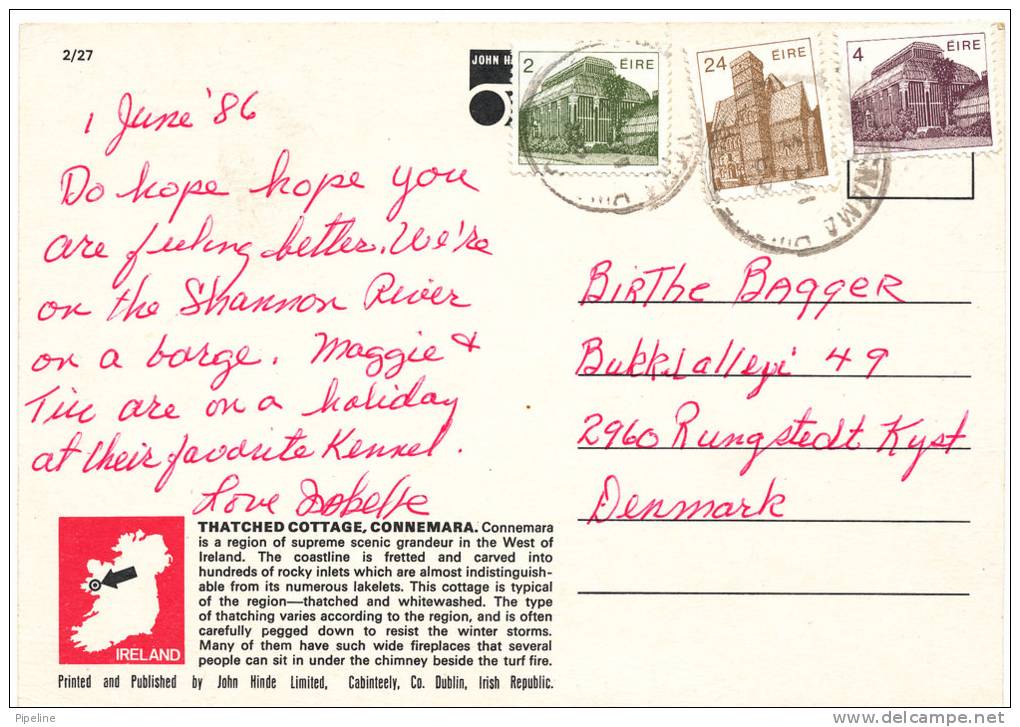 2/27
JOHN
2 ÉIRE
24 ÉIRE
4 ÉIRE
1 June '86
Do hope hope you
are feeling better. We're
on the Shannon River
on a barge. Maggie &
are on a holiday
at their favorite Kennel.
Love
Birthe Bagger
49
2960 Rungstedt Kyst
Denmark
THATCHED COTTAGE, CONNEMARA. Connemara
is a region of supreme scenic grandeur in the West of
Ireland. The coastline is fretted and carved into
hundreds of rocky inlets which are almost indistinguish-
able from its numerous lakelets. This cottage is typical
of the region—thatched and whitewashed. The type
of thatching varies according to the region, and is often
carefully pegged down to resist the winter storms.
Many of them have such wide fireplaces that several
people can sit in under the chimney beside the turf fire.
IRELAND
Printed and Published by John Hinde Limited, Cabinteely, Co. Dublin, Irish Republic.
Pipeline
www.delcampe.net